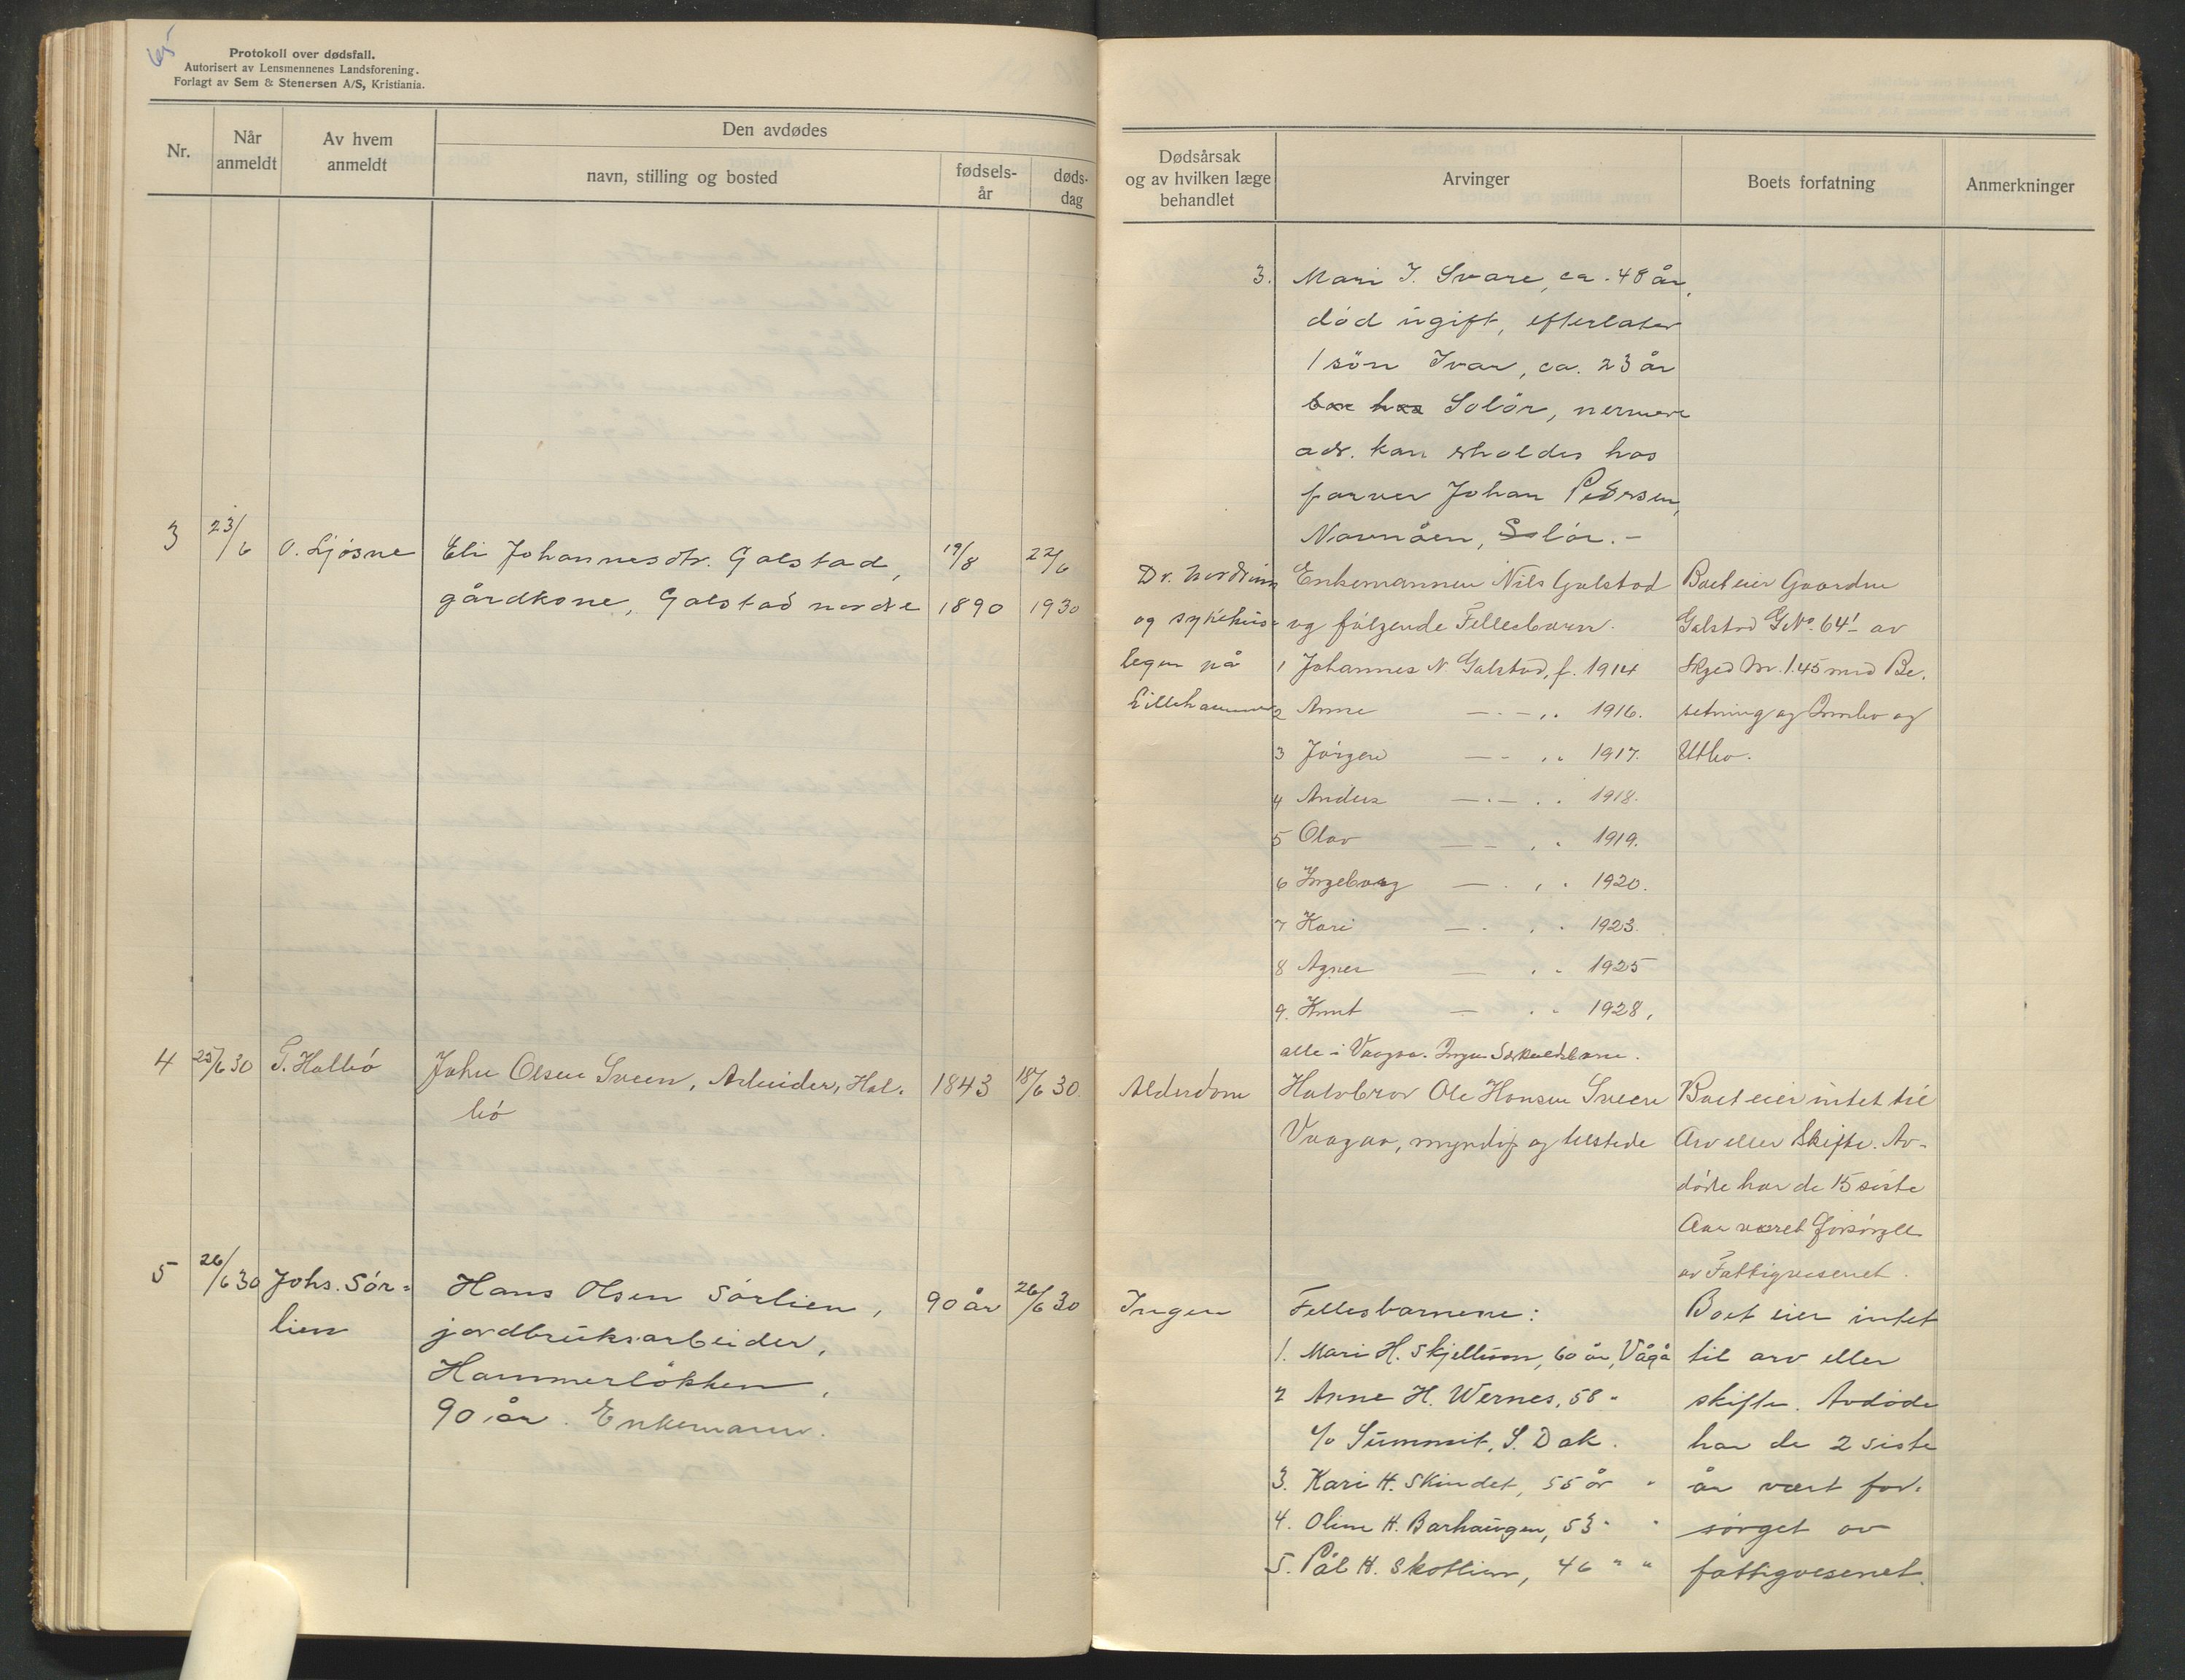 65
Protokoll over dødsfall.
Autorisert av Lensmennenes Landsforening.
Forlagt av Sem & Stenersen A/S, Kristiania.
Nr.
Når anmeldt
Av hvem anmeldt
Den avdødes
navn, stilling og bosted
fødsels-år
døds-dag
Dødsårsak og av hvilken læge behandlet
Arvinger
Boets forfatning
Anmerkninger
3. Mari I. Svare, ca. 48 år,
död ugift, efterlater
1 sön Ivar, ca. 23 år
bor hos Solör, nermere
adr. kan erholdes hos
farver Johan Pedersen,
Navnåen, Solör.-
3
23/6
O. Ljösne
Eli Johannesdtr. Galstad,
gårdkone, Galstad nordre
19/8
1890
22/6
1930
Dr. Nordrum
og sykehus-
legen på
Lillehammer
Enkemannen Nils Galstad
og fölgende Fellesbarn.
1 Johannes N Galstad, f. 1914
2 Anne — - — ,, 1916.
3 Jörgen — - ,, 1917.
4 Anders — . — . . 1918.
5 Olav — — , . 1919.
6 Ingeborg — . , . 1920.
7 Kari — . . . 1923.
8 Agnes — . . 1925
9. Knut — . . 1928,
alle i Vaagaa. Ingen Særkuldsbarn.
Boet eier Gaarden
Galstad GNo. 64/1 av
Skyld Mr. 1.45 med Be-
setning og Innbo og
Utbo.
4
25/6 30
T. Halbö
John Olsen Sveen, Arbeider, Hal-
bö
1843
18/6 30.
Alderdom
Halvbror Ole Hansen Sveen
Vaagaa, myndig og tilstede
Boet eier intet til
Arv eller Skifte. Av-
döde har de 15 siste
Aar været forsörget
av Fattigvesenet.
5
26/6 30
Johs. Sör-
lien
Hans Olsen Sörlien,
jordbruksarbeider,
Hammerlökken,
90 år. Enkemann.
90 år
26/6 30
Ingen
Fellesbarnene:
1. Mari H. Skjellum, 60 år, Vågå
2 Anne H. Wernes, 58 "
c/o Summit, S. Dak.
3. Kari H. Skindet, 55 år "
4. Oline H. Barhaugen, 53 " "
5. Pål H. Skotlien, 46 " "
Boet eier intet
til arv eller
skifte. Avdöde
har de 2 siste
år vært for-
sörget av
fattigvesenet.